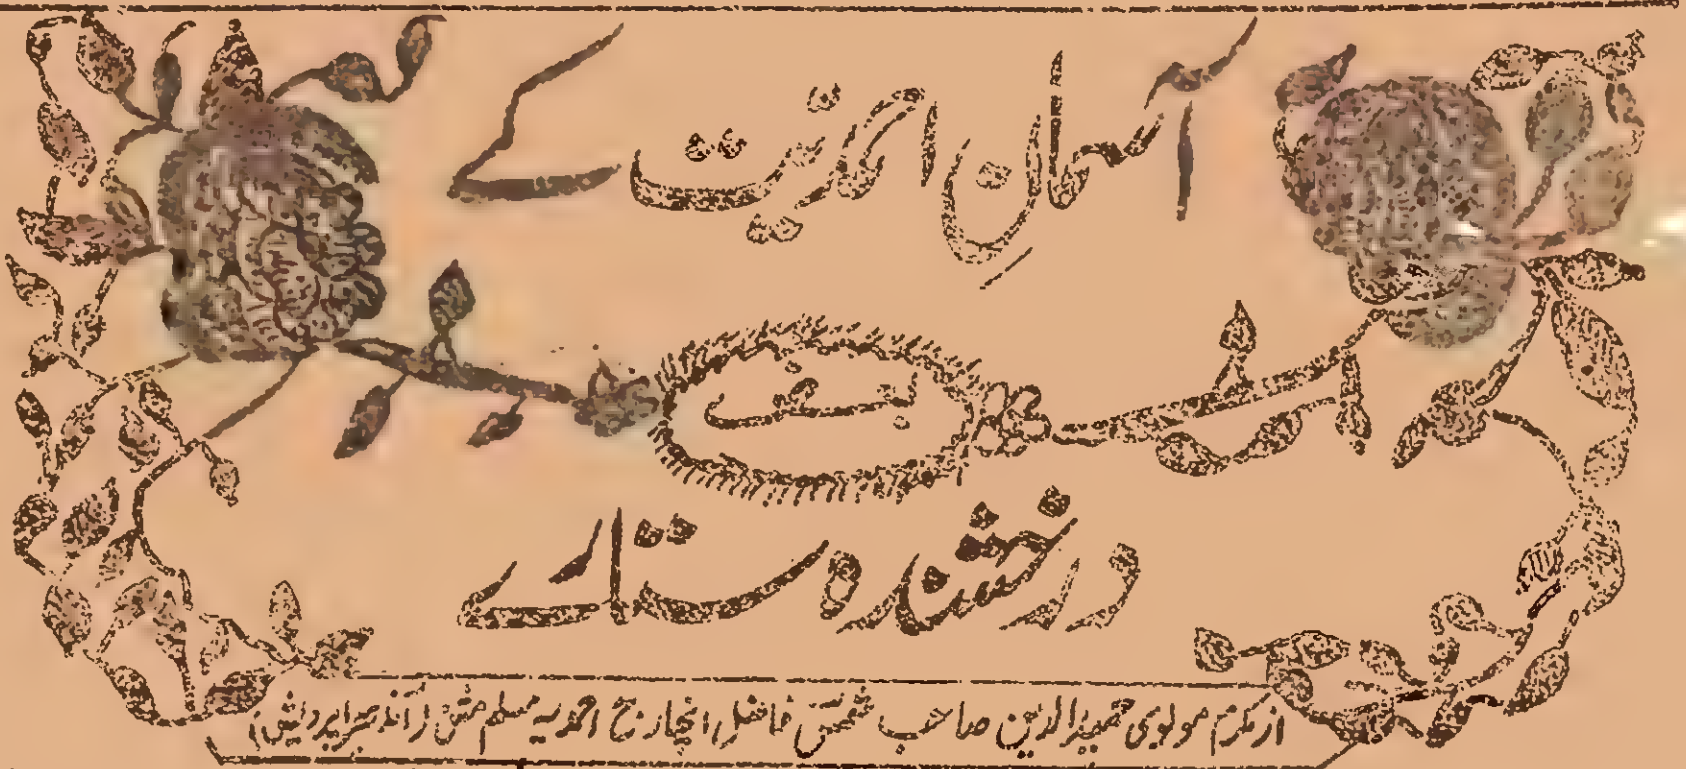 آسمان احمدیت کے
بعض
درخشندہ ستارے
از مکرم مولوی حمیدالدین صاحب شمس فاضل انچارج احمدیہ مسلم مشن (آندھرا پردیش)